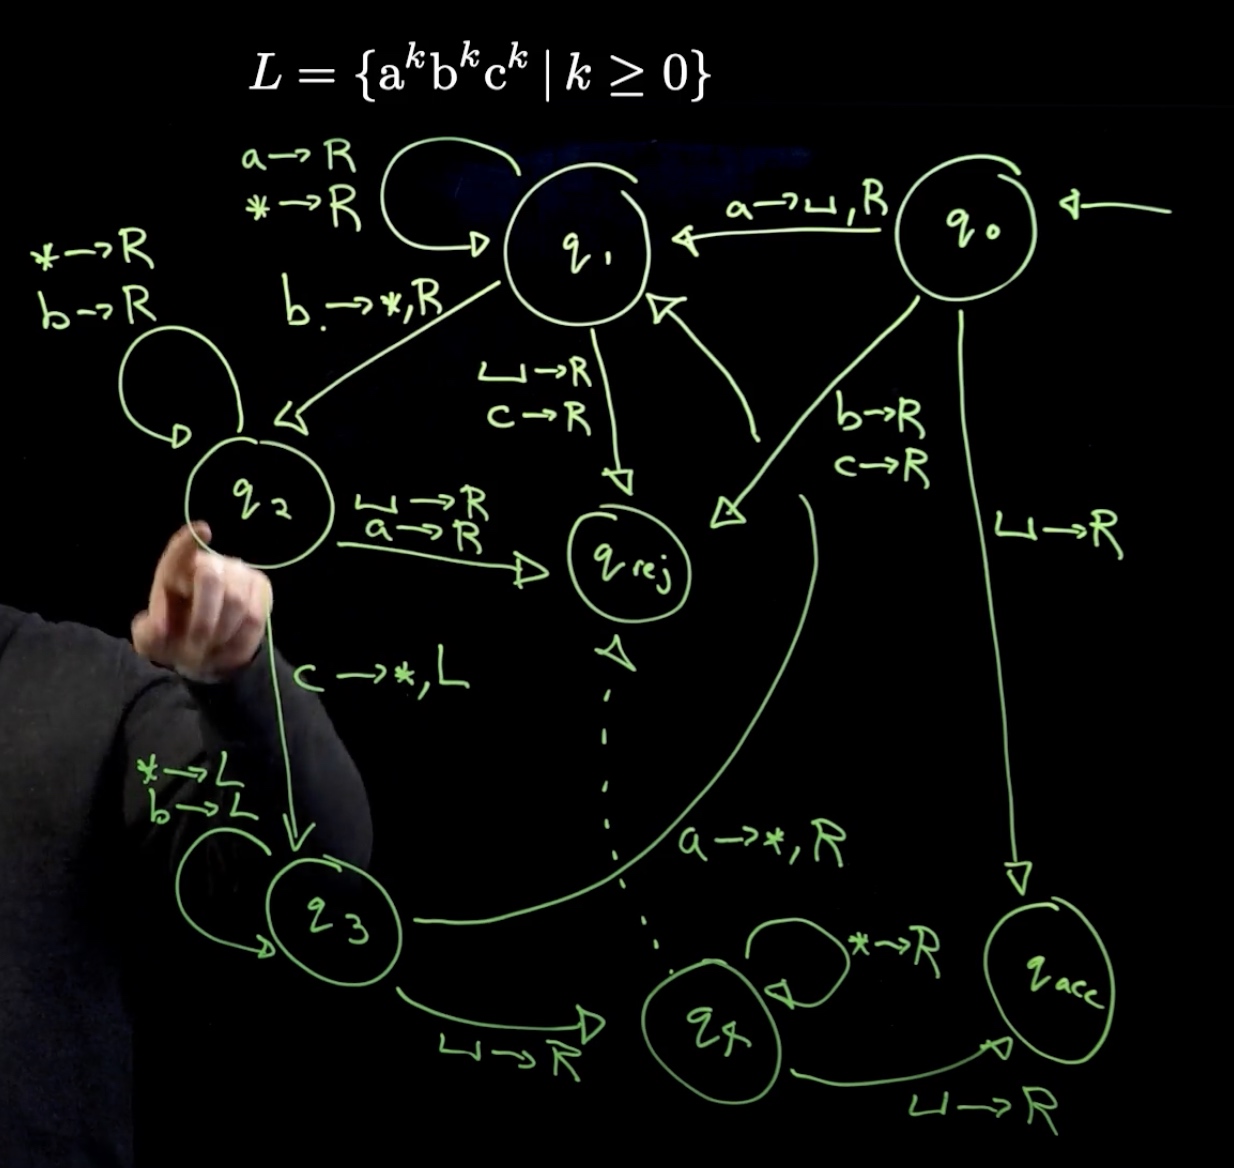 L = {aᵏbᵏcᵏ | k ≥ 0}
a→R
*→R
a→⊔,R
q₀
q₁
*→R
b→R
b.→*,R
⊔→R
c→R
b→R
c→R
q₂
⊔→R
a→R
q rej
⊔→R
c→*,L
*→L
b→L
a→*,R
q₃
*→R
q acc
q₄
⊔→R
⊔→R